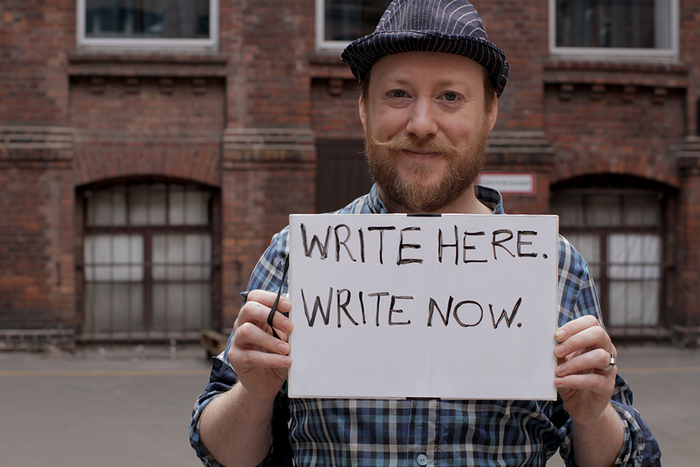 WRITE HERE.
WRITE NOW.